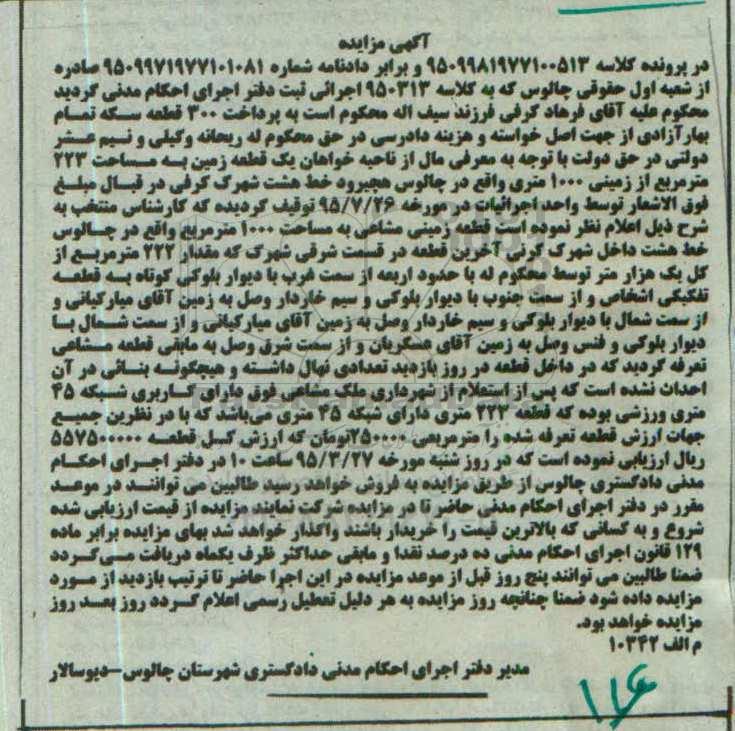 آگهی مزایده
در پرونده کلاسه ۹۵۰۹۹۸۱۹۷۷۱۰۰۵۱۳ و برابر دادنامه شماره ۹۵۰۹۹۷۱۹۷۷۱۰۱۰۸۱ صادره
از شعبه اول حقوقی چالوس که به کلاسه ۹۵۰۳۱۳ اجرائی ثبت دفتر اجرای احکام مدنی گردید
محکوم علیه آقای فرهاد کرفی فرزند سیف اله محکوم است به پرداخت ۳۰۰ قطعه سکه تمام
بهار آزادی از جهت اصل خواسته و هزینه دادرسی در حق محکوم له ریحانه وکیلی و نیم عشر
دولتی در حق دولت با توجه به معرفی مال از ناحیه خواهان یک قطعه زمین به مساحت ۲۲۳
مترمربع از زمینی ۱۰۰۰ متری واقع در چالوس هچیرود خط هشت شهرک کرفی در قبال مبلغ
فوق الاشعار توسط واحد اجرائیات در مورخه ۹۵/۷/۲۶ توقیف گردیده که کارشناس منتخب به
شرح ذیل اعلام نظر نموده است قطعه زمینی مشاعی به مساحت ۱۰۰۰ مترمربع واقع در چالوس
خط هشت داخل شهرک کرنی آخرین قطعه در قسمت شرقی شهرک که مقدار ۲۲۲ مترمربع از
کل یک هزار متر توسط محکوم له با حدود اربعه از سمت غرب با دیوار بلوکی کوتاه به قطعه
تفکیکی اشخاص و از سمت جنوب با دیوار بلوکی و سیم خاردار وصل به زمین آقای میارکیانی و
از سمت شمال با دیوار بلوکی و سیم خاردار وصل به زمین آقای میارکیانی و از سمت شمال با
دیوار بلوکی و فنس وصل به زمین آقای عسگریان و از سمت شرق وصل به مابقی قطعه مشاعی
تعرفه گردید که در داخل قطعه در روز بازدید تعدادی نهال داشته و هیچگونه بنائی در آن
احداث نشده است که پس از استعلام از شهرداری ملک مشاعی فوق دارای کاربری شبکه ۴۵
متری ورزشی بوده که قطعه ۲۲۳ متری دارای شبکه ۴۵ متری می‌باشد که با در نظرین جمیع
جهات ارزش قطعه تعرفه شده را مترمربعی ۲۵۰۰۰۰تومان که ارزش کل قطعه ۵۵۷۵۰۰۰۰۰
ریال ارزیابی نموده است که در روز شنبه مورخه ۹۵/۳/۲۷ ساعت ۱۰ در دفتر اجرای احکام
مدنی دادگستری چالوس از طریق مزایده به فروش خواهد رسید طالبین می توانند در موعد
مقرر در دفتر اجرای احکام مدنی حاضر تا در مزایده شرکت نمایند مزایده از قیمت ارزیابی شده
شروع و به کسانی که بالاترین قیمت را خریدار باشند واگذار خواهد شد بهای مزایده برابر ماده
۱۲۹ قانون اجرای احکام مدنی ده درصد نقدا و مابقی حداکثر ظرف یکماه دریافت می‌گردد
ضمنا طالبین می توانند پنج روز قبل از موعد مزایده در این اجرا حاضر تا ترتیب بازدید از مورد
مزایده داده شود ضمنا چنانچه روز مزایده به هر دلیل تعطیل رسمی اعلام گردد روز بعد روز
مزایده خواهد بود.
م الف ۱۰۳۴۲
مدیر دفتر اجرای احکام مدنی دادگستری شهرستان چالوس-دیوسالار